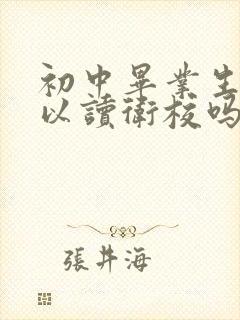 初中畢業生
以讀衛校吗
張井海